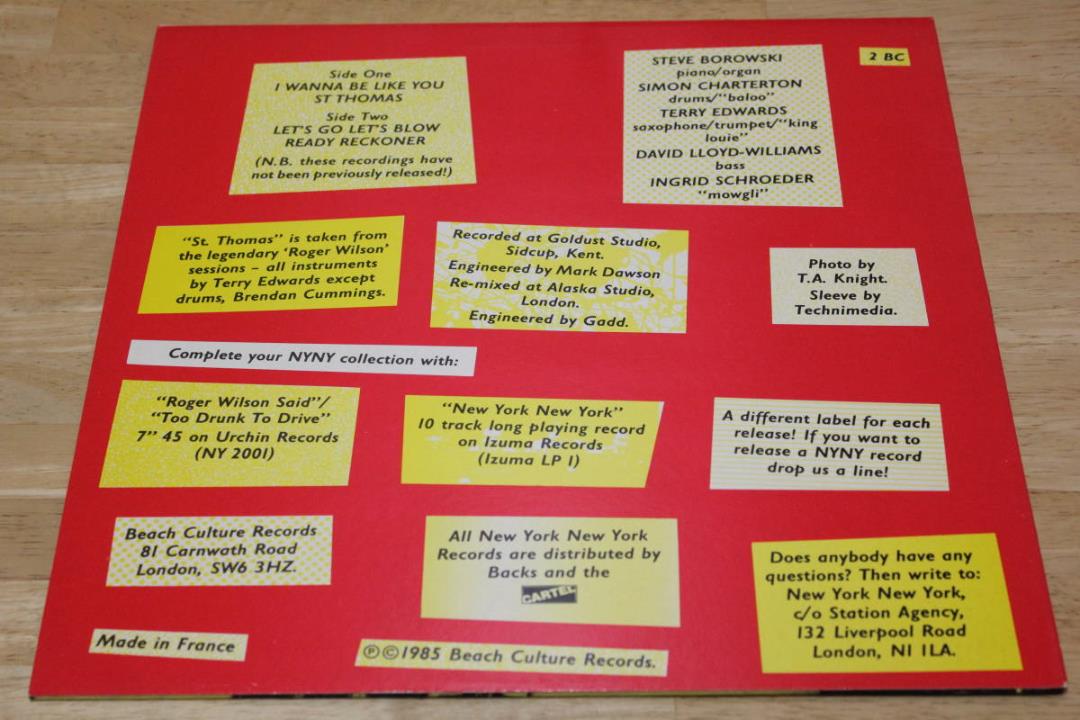 Side One
I WANNA BE LIKE YOU
ST THOMAS
Side Two
LET'S GO LET'S BLOW
READY RECKONER
(N.B. these recordings have
not been previously released!)
STEVE BOROWSKI
piano/organ
SIMON CHARTERTON
drums/"baloo"
TERRY EDWARDS
saxophone/trumpet/"king
louie"
DAVID LLOYD-WILLIAMS
bass
INGRID SCHROEDER
"mowgli"
2 BC
"St. Thomas" is taken from
the legendary 'Roger Wilson'
sessions – all instruments
by Terry Edwards except
drums, Brendan Cummings.
Recorded at Goldust Studio,
Sidcup, Kent.
Engineered by Mark Dawson
Re-mixed at Alaska Studio,
London.
Engineered by Gadd.
Photo by
T.A. Knight.
Sleeve by
Technimedia.
Complete your NYNY collection with:
"Roger Wilson Said"/
"Too Drunk To Drive"
7" 45 on Urchin Records
(NY 2001)
"New York New York"
10 track long playing record
on Izuma Records
(Izuma LP 1)
A different label for each
release! If you want to
release a NYNY record
drop us a line!
Beach Culture Records
81 Carnwath Road
London, SW6 3HZ.
All New York New York
Records are distributed by
Backs and the
CARTEL
Does anybody have any
questions? Then write to:
New York New York,
c/o Station Agency,
132 Liverpool Road
London, N1 1LA.
Made in France
Ⓟ©1985 Beach Culture Records.